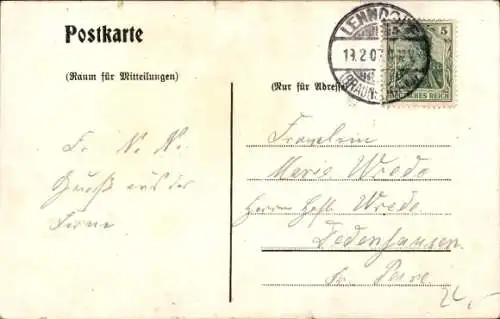 Postkarte
(Raum für Mitteilungen)
(Nur für Adresse
LEHNDORF
13.2.07
BRAUNS
5
DEUTSCHES REICH
Fr. N. N.
Gruß aus der
Ferne
Fräulein
Marie Wrede
Herrn Hofb. Wrede
Dedenhausen
Kr. Peine